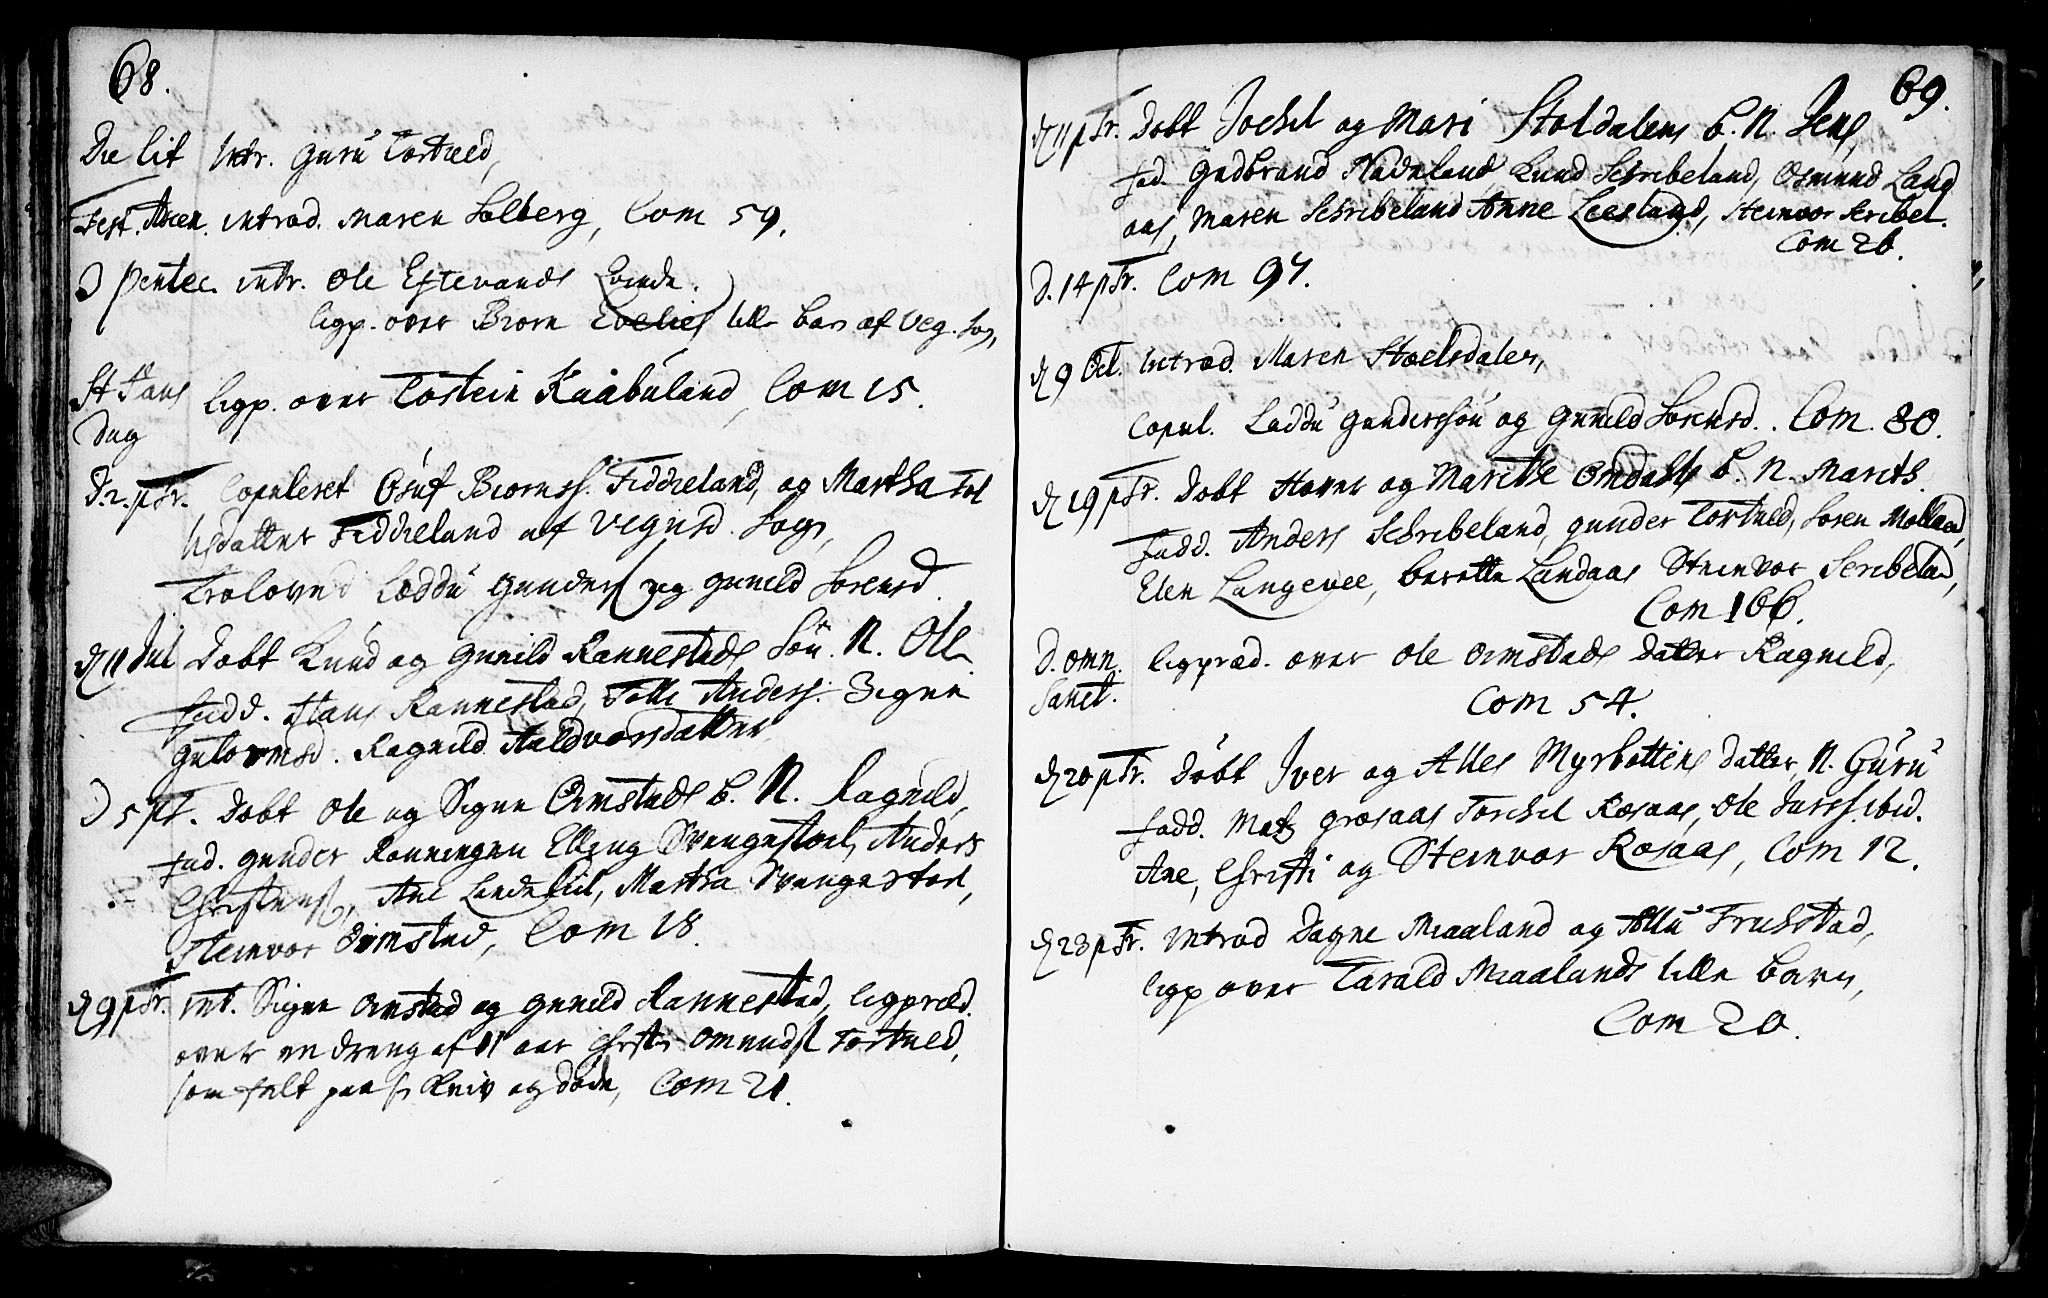 68.
Die lit Intr. Guru Tortveld,
Fest. Ascen. introd. Maren Solberg, Com 59.
D Pentec. intr. Ole Eftevands Qvinde.
ligp. over Biorn lille barn af Veg. Sogn,
St Hans ligp. over Tostein Kaabuland, Com 15.
Dag
D. 2. p Tr. Copuleret Osuf Biornss. Fiddieland, og Martha Tol
lisdatter Fiddieland af Vegusd. Sogn,
Troloved Loddu Gunders. og Gunild Sorensd.
d 11 Jul Dobt Knud og Gunild Rannestads Søn. N. Ole
fadd. Hans Rannestad, Tolle Anders. Signe
Gulormsd. Ragnild Haldvorsdatter
D 5 p Tr. Dobt Ole og Signe Omstads b. N. Ragnild,
fad. Gunder Ronningen Elling Svengestoel, Anders
Christens., Ane Lindeliid, Martha Svengestoel,
Steinvor Omstad, Com 18.
d 9 p Tr. int. Signe Omstad og Gunild Rannestad, ligpræd.
over en dreng af 11 aar Christen Omunds. Tortveld,
som falt paa sin Kniv og døde, Com 21.
69.
d 11 p Tr. Dobt Jochil og Mari Stoldalens b. N. Jens,
fad. Gudbrand Hadeland, Knud Schribeland, Osmund Land
aas, Maren Schribeland Anne Leesland, Steinvor Scribel.
Com 26.
D. 14 p Tr. Com 97.
d 9 Oct. introd. Maren Stoelsdalen,
Copul. Loddu Gunderssøn og Gunild Sorensd. Com. 80.
d 19 p Tr. Dobt Haver og Marithe Omdals b. N. Marith.
fadd. Anders Schribeland, Gunder Tortveld, Soren Molland,
Elen Langevee, berette Landaas Steinvor Scribeland,
Com 106.
D. omn. ligpræd. over Ole Omstads Datter Ragnild,
Sanct.
Com 54.
d 20 p Tr. Døbt Iver og Alles Myrbottens Datter N. Guru
fadd. Matz Grosaas Torchil Rosaas, Ole Larss. ibid.
Ane, Christi og Steinvor Rosaas, Com 12.
d 23 p Tr. introd Dagne Miaaland og Tollu Frustad,
ligp over Tarald Miaalands lille Barn,
Com 20.